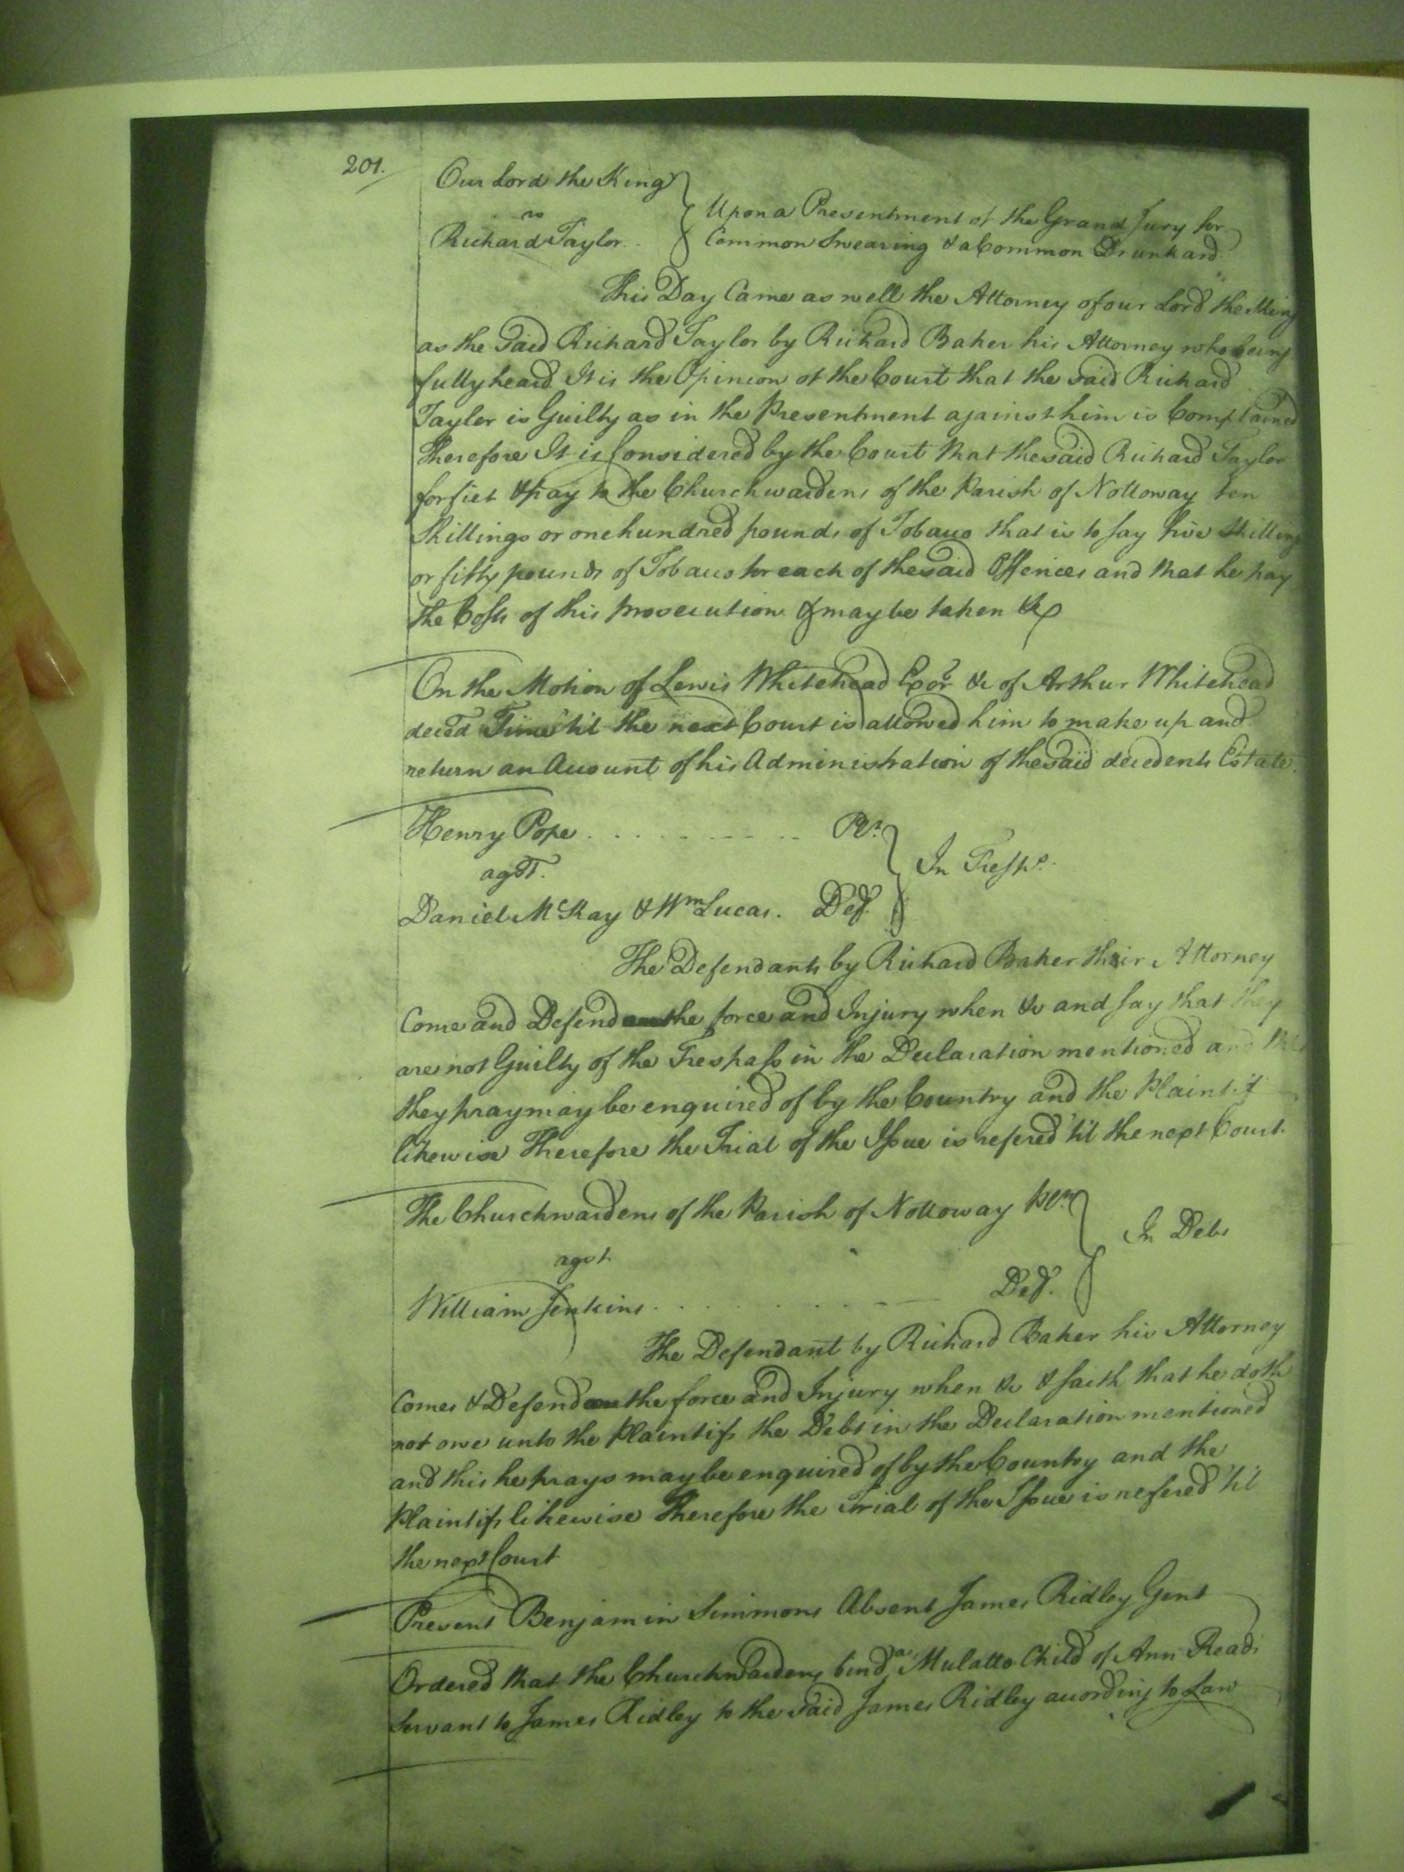 201.
Our Lord the King
vs
Richard Taylor
Upon a Presentment of the Grand Jury for
Common Swearing & a Common Drunkard
This Day Came as well the Attorney of our Lord the King
as the Said Richard Taylor by Richard Baker his Attorney who being
fully heard It is the Opinion of the Court that the said Richard
Taylor is Guilty as in the Presentment against him is Complained
Therefore It is Considered by the Court that the said Richard Taylor
forfiet & pay to the Churchwardens of the Parish of Nottoway ten
Shillings or one hundred pounds of Tobacco that is to say five Shillings
or fifty pounds of Tobacco for each of the said Offences and that he pay
the Costs of this Prosecution & may be taken &c
On the Motion of Lewis Whitehead Exor &c of Arthur Whitehead
deced Time 'til the next Court is allowed him to make up and
return an Account of his Administration of the said decedents Estate.
Henry Pope . . . . . . . . . . Plt.
agst.
Daniel McKay & Wm Lucas. Def.
In Tresps.
The Defendants by Richard Baker their Attorney
Come and Defend the force and Injury when &c and say that they
are not Guilty of the Trespass in the Declaration mentioned and this
they pray may be enquired of by the Country and the Plaintif
likewise Therefore the Trial of the Issue is refered 'til the next Court.
The Churchwardens of the Parish of Nottoway Plts.
agst.
William Jenkins . . . . . . . Def.
In Debt
The Defendant by Richard Baker his Attorney
Comes & Defend the force and Injury when &c & saith that he doth
not owe unto the Plaintifs the Debt in the Declaration mentioned
and this he prays may be enquired of by the Country and the
Plaintifs likewise Therefore the Trial of the Issue is refered 'til
the next Court
Present Benjamin Simmons Absent James Ridley Gent
Ordered that the Churchwardens bind a Mulatto Child of Ann Read
Servant to James Ridley to the said James Ridley according to Law